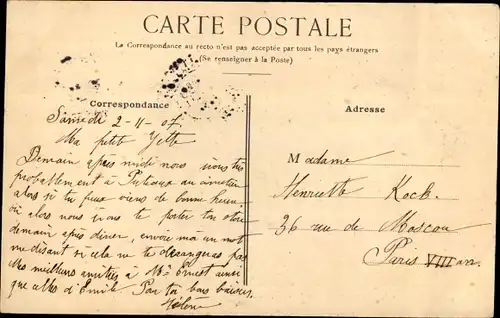 CARTE POSTALE
La Correspondance au recto n'est pas acceptée par tous les pays étrangers
(Se renseigner à la Poste)
Correspondance
Adresse
Samedi 2-11-07
Ma petite Yette
Demain après midi nous irons très
probablement à Puteaux au cimetière
alors si tu peux viens de bonne heure
où alors nous irons te porter ton
demain après dîner, envoie moi un mot
me disant si cela ne te dérangera pas
Mes meilleurs amitiés à Mr Ernest ainsi
que celles d'Emile Pour toi bons baisers
Hélène
Madame
Henriette Koch
36 rue de Moscou
Paris VIII an.